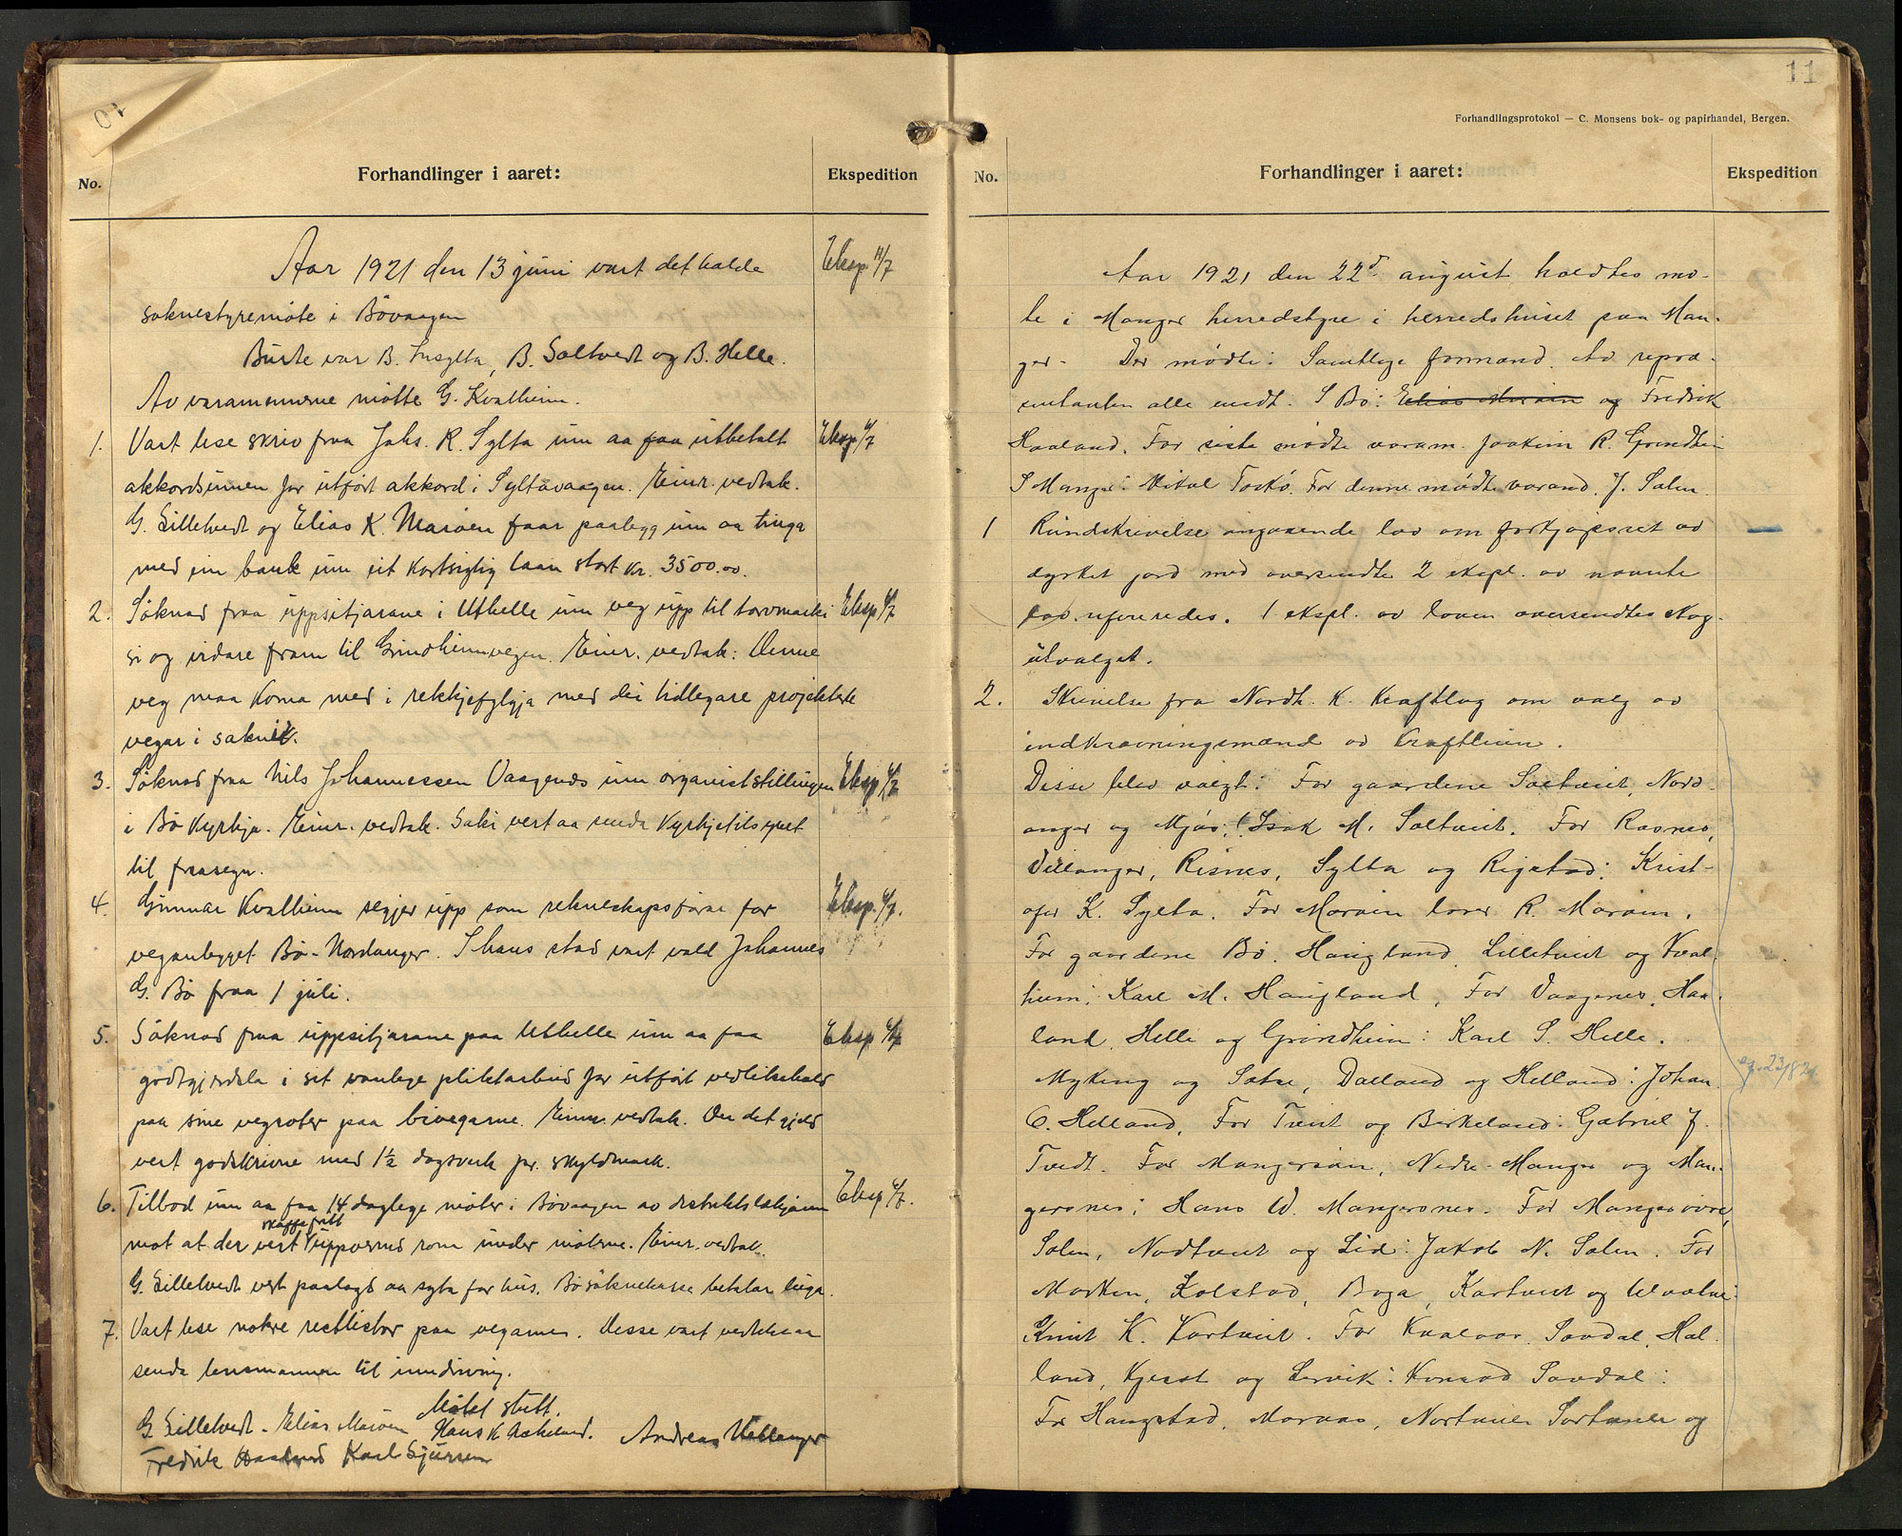 10
No.
Forhandlinger i aaret:
Ekspedition
Aar 1921 den 13 juni vart det halde
Eksp 11/7
soknestyremöte i Bövaagen
Burte var B. Insylta, B. Soltvedt og B. Helle.
Av varamennerne mötte G. Kvalheim.
1. Vart lese skriv fraa Johs. R. Sylta um aa faa utbetalt
Eksp 4/7
akkordsumen for utfört akkord i Syltavaagen. Einr. vedtak.
G. Lilletvedt og Elias K. Maröen faar paalegg um aa tinga
med ein bank um eit kortsigtig laan stort kr. 3500.00.
2. Söknad fraa uppsitjarane i Uthelle um veg upp til torvmarki
Eksp 4/7
si og vidare fram til Grindheimvegen. Einr. vedtak: Denne
veg maa koma med i rekkjefylgja med dei tidlegare projekterte
vegar i sokni.
3. Söknad fraa Nils Johannessen Vaagenes um organiststillingen
Eksp 4/7
i Bö Kyrkja. Einr. vedtak. Saki vert aa senda Kyrkjetilsynet
til fraasegn.
4. Gunnar Kvalheim segjer upp som rekneskapsförar for
Eksp. 4/7.
veganlegget Bö-Nordanger. I hans stad vart vald Johannes
G. Bö fraa 1 juli.
5. Söknad fraa uppsitjarane paa Uthelle um aa faa
Eksp 4/7
godtgjerdsla i sit vanlege pliktarbeid for utfört vedlikehald
paa sine vegroter paa bivegarne. Einr. vedtak. Om det gjeld
vert godskrivne med 1½ dagsverk pr. skyldmark.
6. Tilbod um aa faa 14 daglege möter i Bövaagen av distriktslækjaren
Eksp 4/7.
skaffa fritt
mot at der vert uppvermd rom under möterne. Einr. vedtak.
G. Lilletvedt vert paalagt aa syta for hus. Bö söknekasse betalar leiga.
7. Vart lese nokre restlistor paa vegarne. Desse vart vedteke aa
senda lensmannen til inndriving.
Mötet slutt.
G. Lilletvedt - Elias Maröen Hans K Askeland. Andreas Vellanger
Fredrik Haaland Karl Sjursen
11
Forhandlingsprotokol — C. Monsens bok- og papirhandel, Bergen.
No.
Forhandlinger i aaret:
Ekspedition
Aar 1921 den 22d august holdtes mö-
te i Manger herredstyre i herredshuset paa Man-
ger. Der mødte: Samtlige formænd. Av repræ-
sentanten alle undt. I Bö: Elias Maröen og Fredrik
Haaland. For siste mødte varam. Joakim R. Grindhei
I Manger: Mikal Toskö. For denne mødte varamd. J. Salen.
1 Rundskrivelse angaaende lov om forkjøpsret av
dyrket jord med oversendte 2 ekspl. av nævnte
lov refereredes. 1 ekspl. av loven oversendtes skog-
utvalget.
2. Skrivelse fra Nordh. K. Kraftlag om valg av
indkrævningsmænd av kraftleien.
Disse blev valgt: For gaardene Soltveit, Nord-
anger og Mjös: Isak M. Soltveit. For Rosnes,
Vellanger, Risnes, Sylta og Rigstad: Krist-
ofer K. Sylta. For Maröen Lars R. Maröen.
For gaardene Bö, Haugland, Lilletveit og Kval-
heim: Karl M. Haugland. For Vaagenes, Haa-
land, Helle og Grindheim: Karl S. Helle.
eg. 23/8 21
Myking og Sætre, Dalland og Helland: Johan
O. Helland. For Tveit og Birkeland: Gabriel J.
Tvedt. For Mangersöen, Nedre-Manger og Man-
gersnes: Hans W. Mangersnes. For Manger övre,
Solen, Nodtveit og Lid: Jakob N. Salen. For
Marken, Kolstad, Boga, Kartveit og
Knut K. Kartveit. For Kvalvaar, Sovdal, Hol-
land, Hjerst og Lervik: Konrad Sovdal:
For Haugstad, Morvas, Nortveit Sortveit og